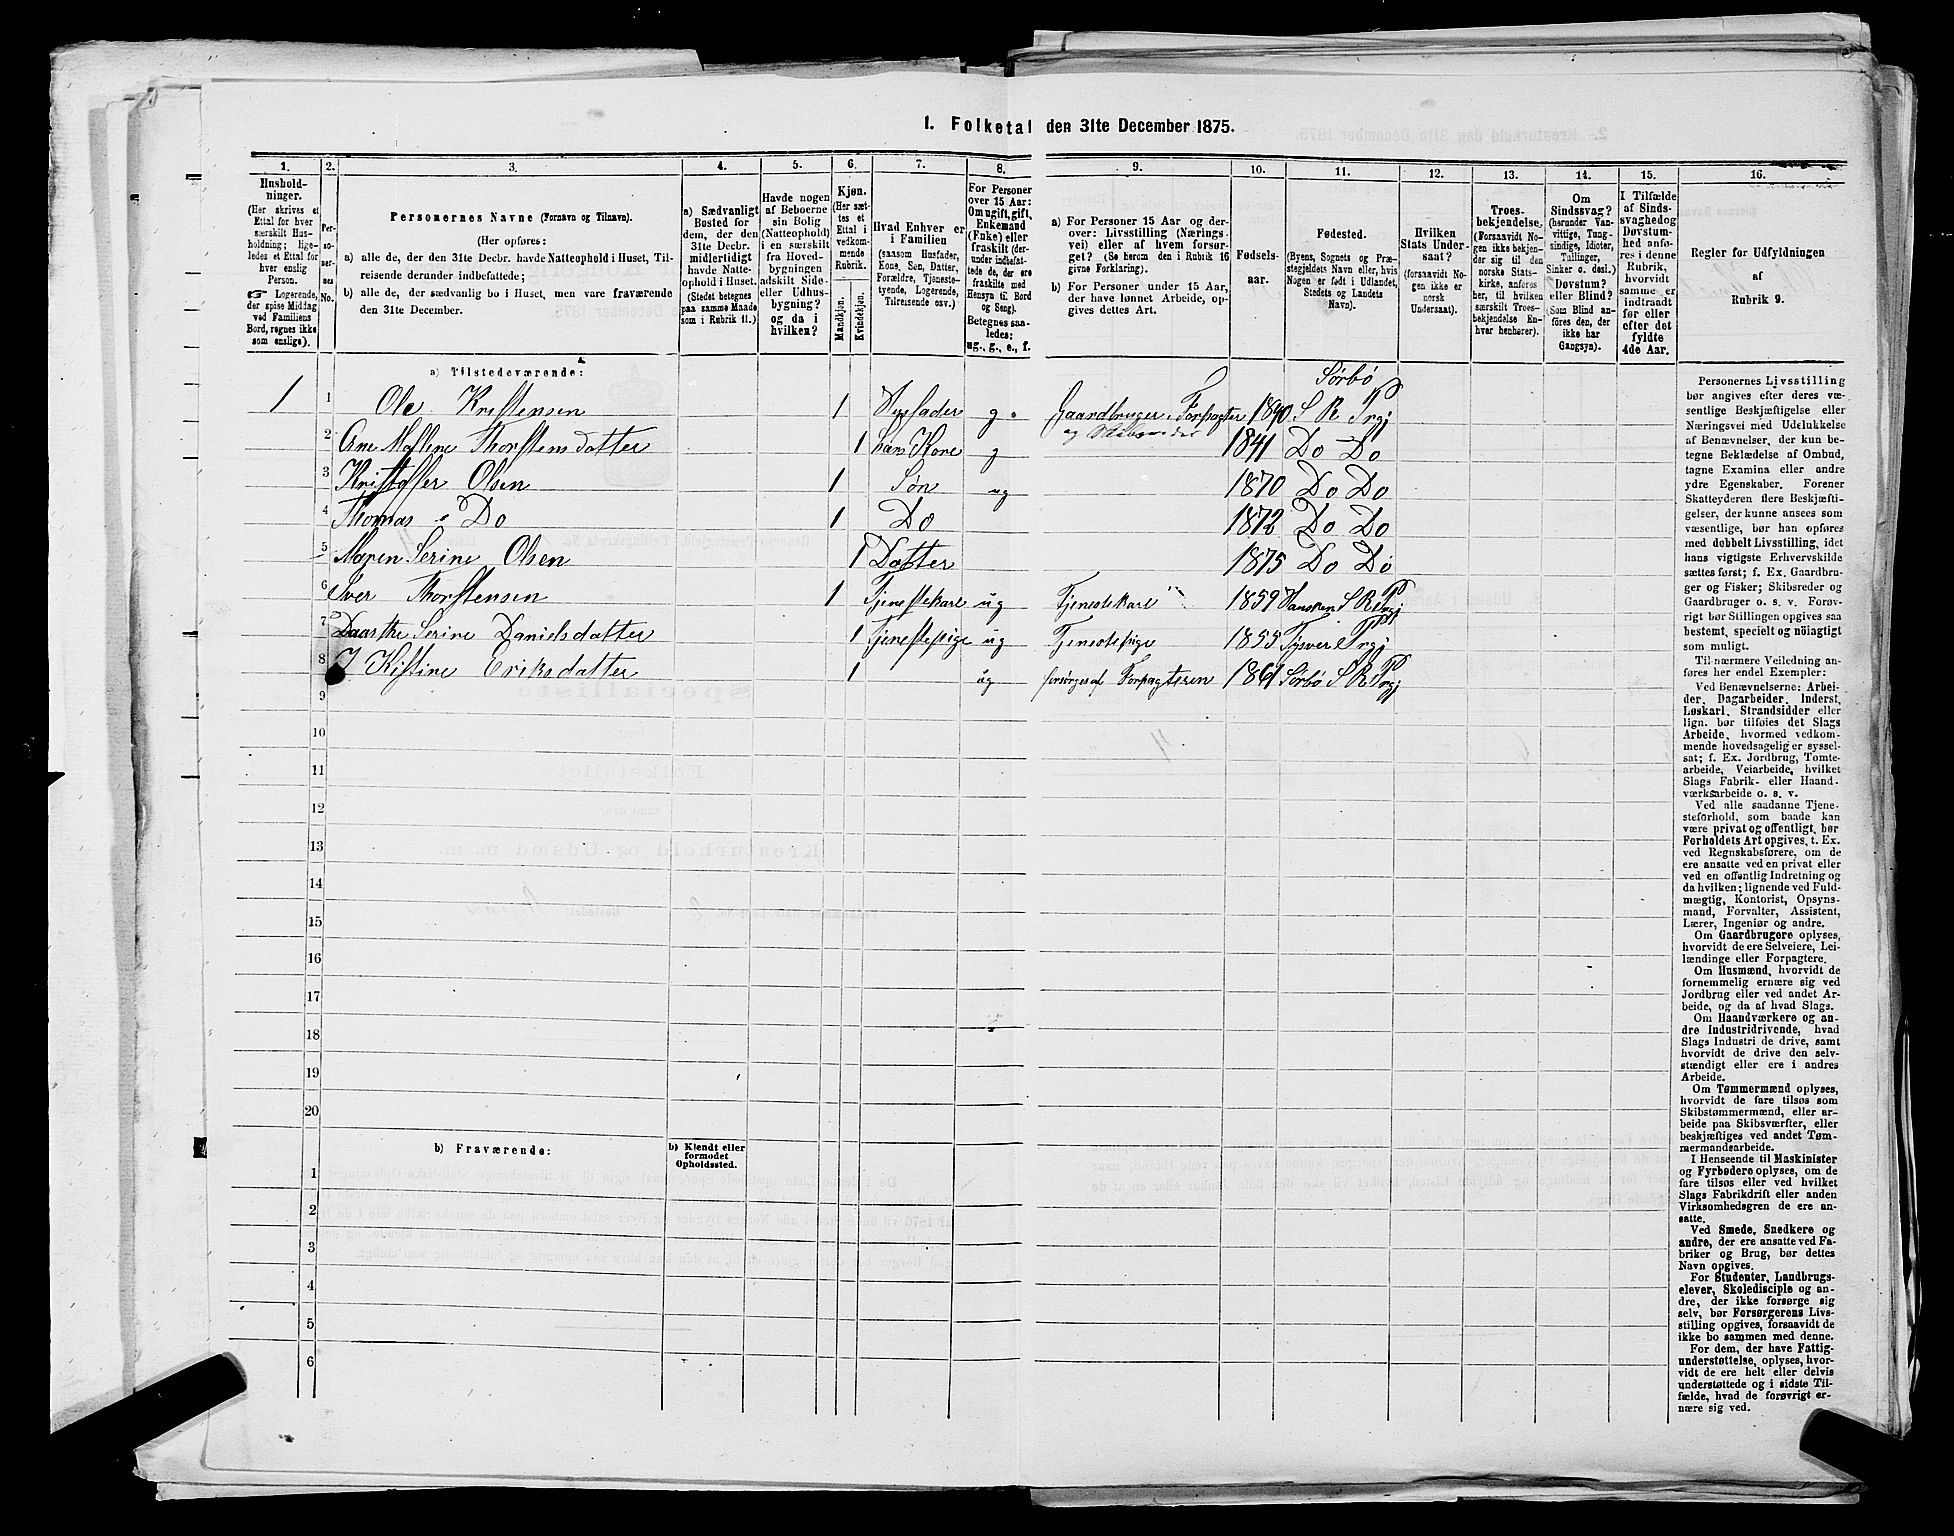 1. Folketal den 31te December 1875.
1. 2. 3. 4. 5. 6. 7. 8. 9. 10. 11. 12. 13. 14. 15. 16.
Hushold-
ninger.
(Her skrives et
Ettal for hver
særskilt Hus-
holdning; lige-
ledes et Ettal for
hver enslig
Person.
☞ Logerende,
der spise Middag
ved Familiens
Bord, regnes ikke
som enslige).
Per-
so-
ner-
nes
No.
Personernes Navne (Fornavn og Tilnavn).
(Her opføres:
a) alle de, der den 31te Decbr. havde Natteophold i Huset, Til-
reisende derunder indbefattede;
b) alle de, der sædvanlig bo i Huset, men vare fraværende
den 31te December.
a) Sædvanligt
Bosted for
dem, der den
31te Decbr.
midlertidigt
havde Natte-
ophold i Huset.
(Stedet betegnes
paa samme Maade
som i Rubrik 11.)
Havde nogen
af Beboerne
sin Bolig
(Natteophold)
i en særskilt
fra Hoved-
bygningen
adskilt Side-
eller Udhus-
bygning?
og da i
hvilken?
Kjøn.
(Her sæt-
tes et
Ettal i
vedkom-
mende
Rubrik.
Mandkjøn.
Kvindekjøn.
Hvad Enhver er
i Familien
(saasom Husfader,
Kone, Søn, Datter,
Forældre, Tjeneste-
tyende, Logerende,
Tilreisende osv.)
For Personer
over 15 Aar:
Om ugift, gift,
Enkemand
(Enke) eller
fraskilt (der-
under indbefat-
tede de, der ere
fraskilte med
Hensyn til Bord
og Seng).
Betegnes saa-
ledes:
ug., g., e., f.
a) For Personer 15 Aar og der-
over: Livsstilling (Nærings-
vei) eller af hvem forsør-
get? (Se herom den i Rubrik 16
givne Forklaring).
b) For Personer under 15 Aar,
der have lønnet Arbeide, op-
gives dettes Art.
Fødsels-
aar.
Fødested.
(Byens, Sognets og Præ-
stegjeldets Navn eller, hvis
Nogen er født i Udlandet,
Stedets og Landets
Navn).
Hvilken
Stats Under-
saat?
(forsaavidt No-
gen ikke er
norsk
Undersaat).
Troes-
bekjendelse.
(Forsaavidt No-
gen ikke bekjen-
der sig til den
norske Stats-
kirke, anføres
her, til hvilken
særskilt Troes-
bekjendelse En-
hver henhører).
Om
Sindssvag?
(herunder Van-
vittige, Tung-
sindige, Idioter,
Tullinger,
Sinker o. desl.)
Døvstum?
eller Blind?
(Som Blind an-
føres den, der
ikke har
Gangsyn).
I Tilfælde
af Sinds-
svaghed og
Døvstum-
hed anfø-
res i denne
Rubrik,
hvorvidt
samme er
indtraadt
før eller
efter det
fyldte
4de Aar.
Regler for Udfyldningen
af
Rubrik 9.
a) Tilstedeværende:
Sørbø
1 1 Ole Kristensen 1 Husfader g. Gaardbruger, Forpagter 1840 S R Prgj
og
2 Ane Mallene Thorstensdatter 1 hans Kone g 1841 Do Do
3 Kristoffer Olsen 1 Søn ug 1870 Do Do
4 Thomas Do 1 Do 1872 Do Do
5 Maren Serine Olsen 1 Datter 1875 Do Do
6 Iver Thorstensen 1 Tjenestekare ug Tjenestekare 1859 S R Prgj
7 Daarthe Serine Danielsdatter 1 Tjenestepige ug Tjenestepige 1855 Tysver Prgj
8 J Kistine Eriksdatter 1 ug forsørges af Forpagteren 1861 Sørbø S R Prgj
9
10
11
12
13
14
15
16
17
18
19
20
b) Fraværende:
b) Kjendt eller
formodet
Opholdssted.
1
2
3
4
5
6
Personernes Livsstilling
bør angives efter deres væ-
sentlige Beskjæftigelse eller
Næringsvei med Udelukkelse
af Benævnelser, der kun be-
tegne Beklædelse af Ombud,
tagne Examina eller andre
ydre Egenskaber. Forener
Skatteyderen flere Beskjæfti-
gelser, der kunne ansees som
væsentlige, bør han opføres
med dobbelt Livsstilling, idet
hans vigtigste Erhvervskilde
sættes først; f. Ex. Gaardbru-
ger og Fisker; Skibsreder og
Gaardbruger o. s. v. Forøv-
rigt bør Stillingen opgives saa
bestemt, specielt og nöiagtigt
som muligt.
Til nærmere Veiledning an-
føres her endel Exempler:
Ved Benævnelserne: Arbei-
der, Dagarbeider, Inderst,
Løskarl, Strandsidder eller
lign. bør tilføies det Slags
Arbeide, hvormed vedkom-
mende hovedsagelig er syssel-
sat; f. Ex. Jordbrug, Tomte-
arbeide, Veiarbeide, hvilket
Slags Fabrik- eller Haand-
værksarbeide o. s. v.
Ved alle saadanne Tjene-
steforhold, som baade kan
være privat og offentligt, bør
Forholdets Art opgives, t. Ex.
ved Regnskabsførere, om de
ere ansatte ved en privat eller
ved en offentlig Indretning og
da hvilken; lignende ved Fuld-
mægtig, Kontorist, Opsyns-
mand, Forvalter, Assistent,
Lærer, Ingeniør og andre.
Om Gaardbrugere oplyses,
hvorvidt de ere Selveiere, Lei-
lændinge eller Forpagtere.
Om Husmænd, hvorvidt de
fornemmelig ernære sig ved
Jordbrug eller ved andet Ar-
beide, og da af hvad Slags.
Om Haandværkere og an-
dre Industridrivende, hvad
Slags Industri de drive, samt
hvorvidt de drive den selv-
stændigt eller ere i andres
Arbeide.
Om Tømmermænd oplyses,
hvorvidt de fare tilsøs som
Skibstømmermænd, eller ar-
beide paa Skibsværfter, eller
beskjæftiges ved andet Tøm-
mermandsarbeide.
I Henseende til Maskinister
og Fyrbødere oplyses, om de
fare tilsøs eller ved hvilket
Slags Fabrikdrift eller anden
Virksomhedsgren de ere an-
satte.
Ved Smede, Snedkere og
andre, der ere ansatte ved Fa-
briker og Brug, bør dettes
Navn opgives.
For Studenter, Landbrugs-
elever, Skoledisciple og an-
dre, der ikke forsørge sig
selv, bør Forsørgerens Livs-
stilling opgives, forsaavidt de
ikke bo sammen med denne.
For dem, der have Fattig-
understøttelse, oplyses, hvor-
vidt de ere helt eller delvis
understøttede og i sidste Til-
fælde, hvad de forøvrigt er-
nære sig ved.